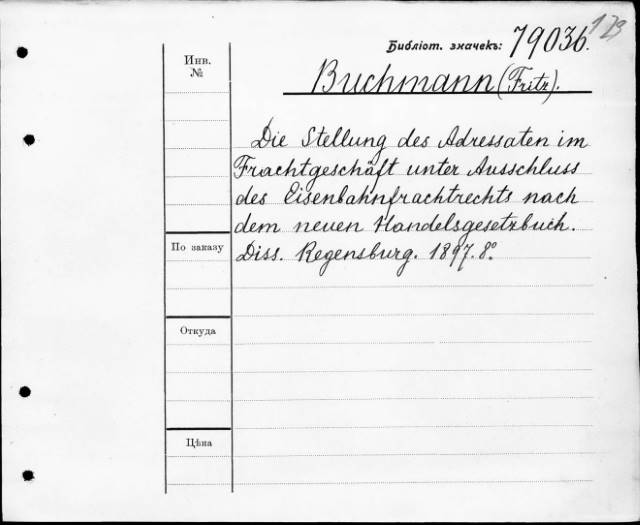 123
Библіот. значекъ: 79036.
Инв.
№
Buchmann (Fritz).
Die Stellung des Adressaten im
Frachtgeschäft unter Ausschluss
des Eisenbahnfrachtrechts nach
dem neuen Handelsgesetzbuch.
Diss. Regensburg. 1897. 8°.
По заказу
Откуда
Цѣна